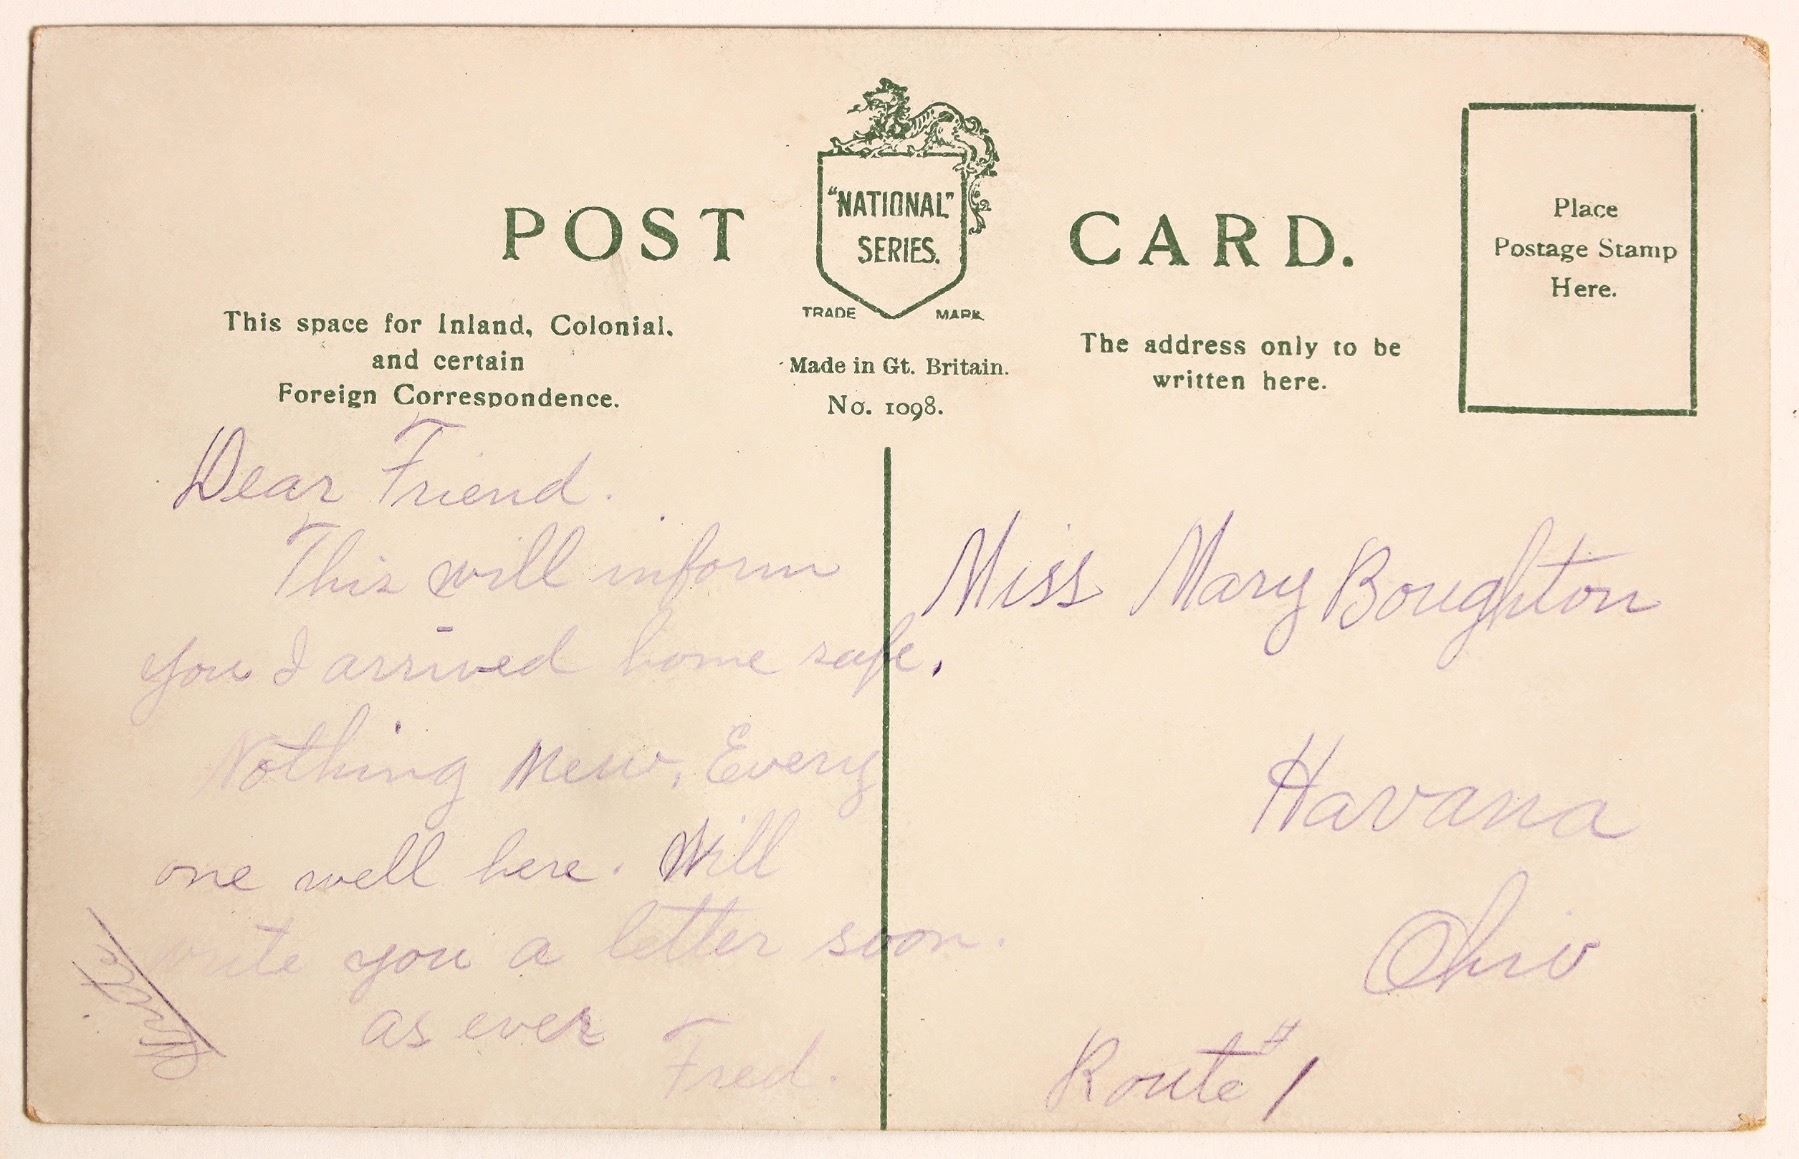 POST CARD.
"NATIONAL"
SERIES.
TRADE MARK
Made in Gt. Britain.
No. 1098.
Place
Postage Stamp
Here.
This space for Inland, Colonial,
and certain
Foreign Correspondence.
The address only to be
written here.
Dear Friend.
This will inform
you I arrived home safe.
Nothing New, Every
one well here. Will
write you a letter soon.
as ever
Fred.
Write
Miss Mary Boughton
Havana
Ohio
Route #1